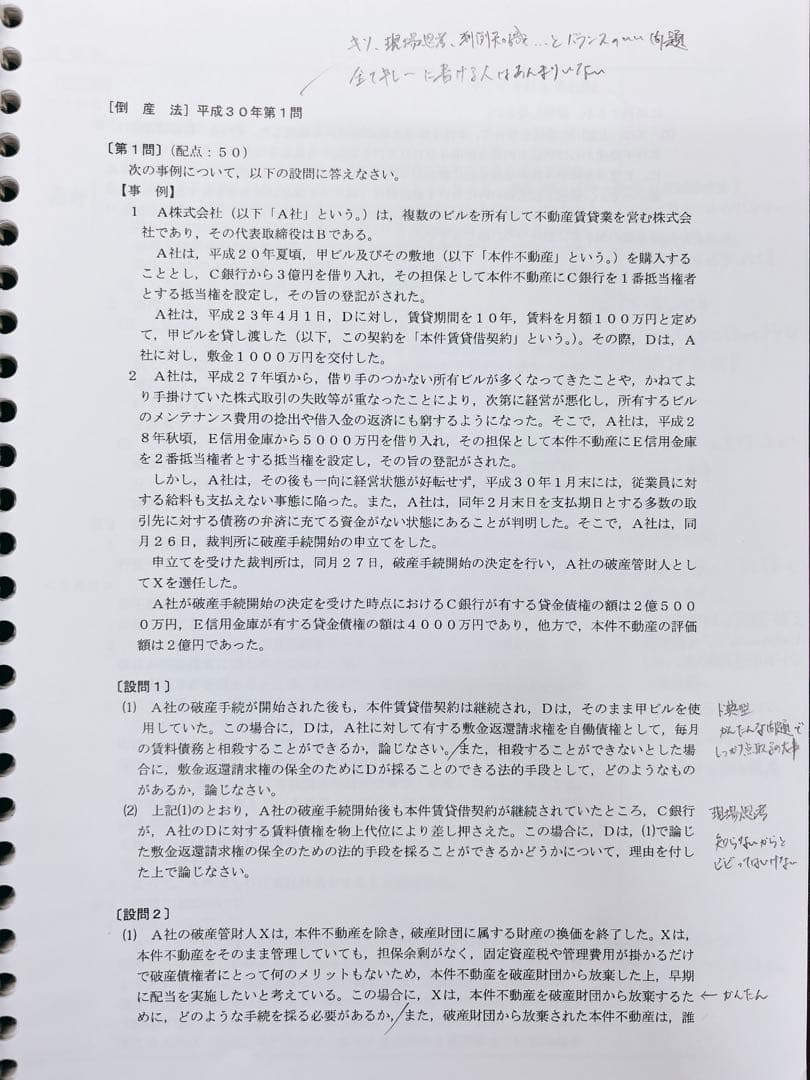 キソ、現場思考、判例知識…とバランスのいい問題
全てキレーに書ける人はあんまりいない
［倒　産　法］平成３０年第１問
〔第１問〕（配点：５０）
次の事例について，以下の設問に答えなさい。
【事　例】
１　Ａ株式会社（以下「Ａ社」という。）は，複数のビルを所有して不動産賃貸業を営む株式会
社であり，その代表取締役はＢである。
Ａ社は，平成２０年夏頃，甲ビル及びその敷地（以下「本件不動産」という。）を購入する
こととし，Ｃ銀行から３億円を借り入れ，その担保として本件不動産にＣ銀行を１番抵当権者
とする抵当権を設定し，その旨の登記がされた。
Ａ社は，平成２３年４月１日，Ｄに対し，賃貸期間を１０年，賃料を月額１００万円と定め
て，甲ビルを貸し渡した（以下，この契約を「本件賃貸借契約」という。）。その際，Ｄは，Ａ
社に対し，敷金１０００万円を交付した。
２　Ａ社は，平成２７年頃から，借り手のつかない所有ビルが多くなってきたことや，かねてよ
り手掛けていた株式取引の失敗等が重なったことにより，次第に経営が悪化し，所有するビル
のメンテナンス費用の捻出や借入金の返済にも窮するようになった。そこで，Ａ社は，平成２
８年秋頃，Ｅ信用金庫から５０００万円を借り入れ，その担保として本件不動産にＥ信用金庫
を２番抵当権者とする抵当権を設定し，その旨の登記がされた。
しかし，Ａ社は，その後も一向に経営状態が好転せず，平成３０年１月末には，従業員に対
する給料も支払えない事態に陥った。また，Ａ社は，同年２月末日を支払期日とする多数の取
引先に対する債務の弁済に充てる資金がない状態にあることが判明した。そこで，Ａ社は，同
月２６日，裁判所に破産手続開始の申立てをした。
申立てを受けた裁判所は，同月２７日，破産手続開始の決定を行い，Ａ社の破産管財人とし
てＸを選任した。
Ａ社が破産手続開始の決定を受けた時点におけるＣ銀行が有する貸金債権の額は２億５００
０万円，Ｅ信用金庫が有する貸金債権の額は４０００万円であり，他方で，本件不動産の評価
額は２億円であった。
〔設問１〕
(1)　Ａ社の破産手続が開始された後も，本件賃貸借契約は継続され，Ｄは，そのまま甲ビルを使
用していた。この場合に，Ｄは，Ａ社に対して有する敷金返還請求権を自働債権として，毎月
の賃料債務と相殺することができるか，論じなさい。また，相殺することができないとした場
合に，敷金返還請求権の保全のためにＤが採ることのできる法的手段として，どのようなもの
があるか，論じなさい。
ド典型
かんたんな問題で
しっかり点取るの大事
(2)　上記(1)のとおり，Ａ社の破産手続開始後も本件賃貸借契約が継続されていたところ，Ｃ銀行
が，Ａ社のＤに対する賃料債権を物上代位により差し押さえた。この場合に，Ｄは，(1)で論じ
た敷金返還請求権の保全のための法的手段を採ることができるかどうかについて，理由を付し
た上で論じなさい。
現場思考
知らないからと
ビビってはいけない
〔設問２〕
(1)　Ａ社の破産管財人Ｘは，本件不動産を除き，破産財団に属する財産の換価を終了した。Ｘは，
本件不動産をそのまま管理していても，担保余剰がなく，固定資産税や管理費用が掛かるだけ
で破産債権者にとって何のメリットもないため，本件不動産を破産財団から放棄した上，早期
に配当を実施したいと考えている。この場合に，Ｘは，本件不動産を破産財団から放棄するた
めに，どのような手続を採る必要があるか，また，破産財団から放棄された本件不動産は，誰
← かんたん